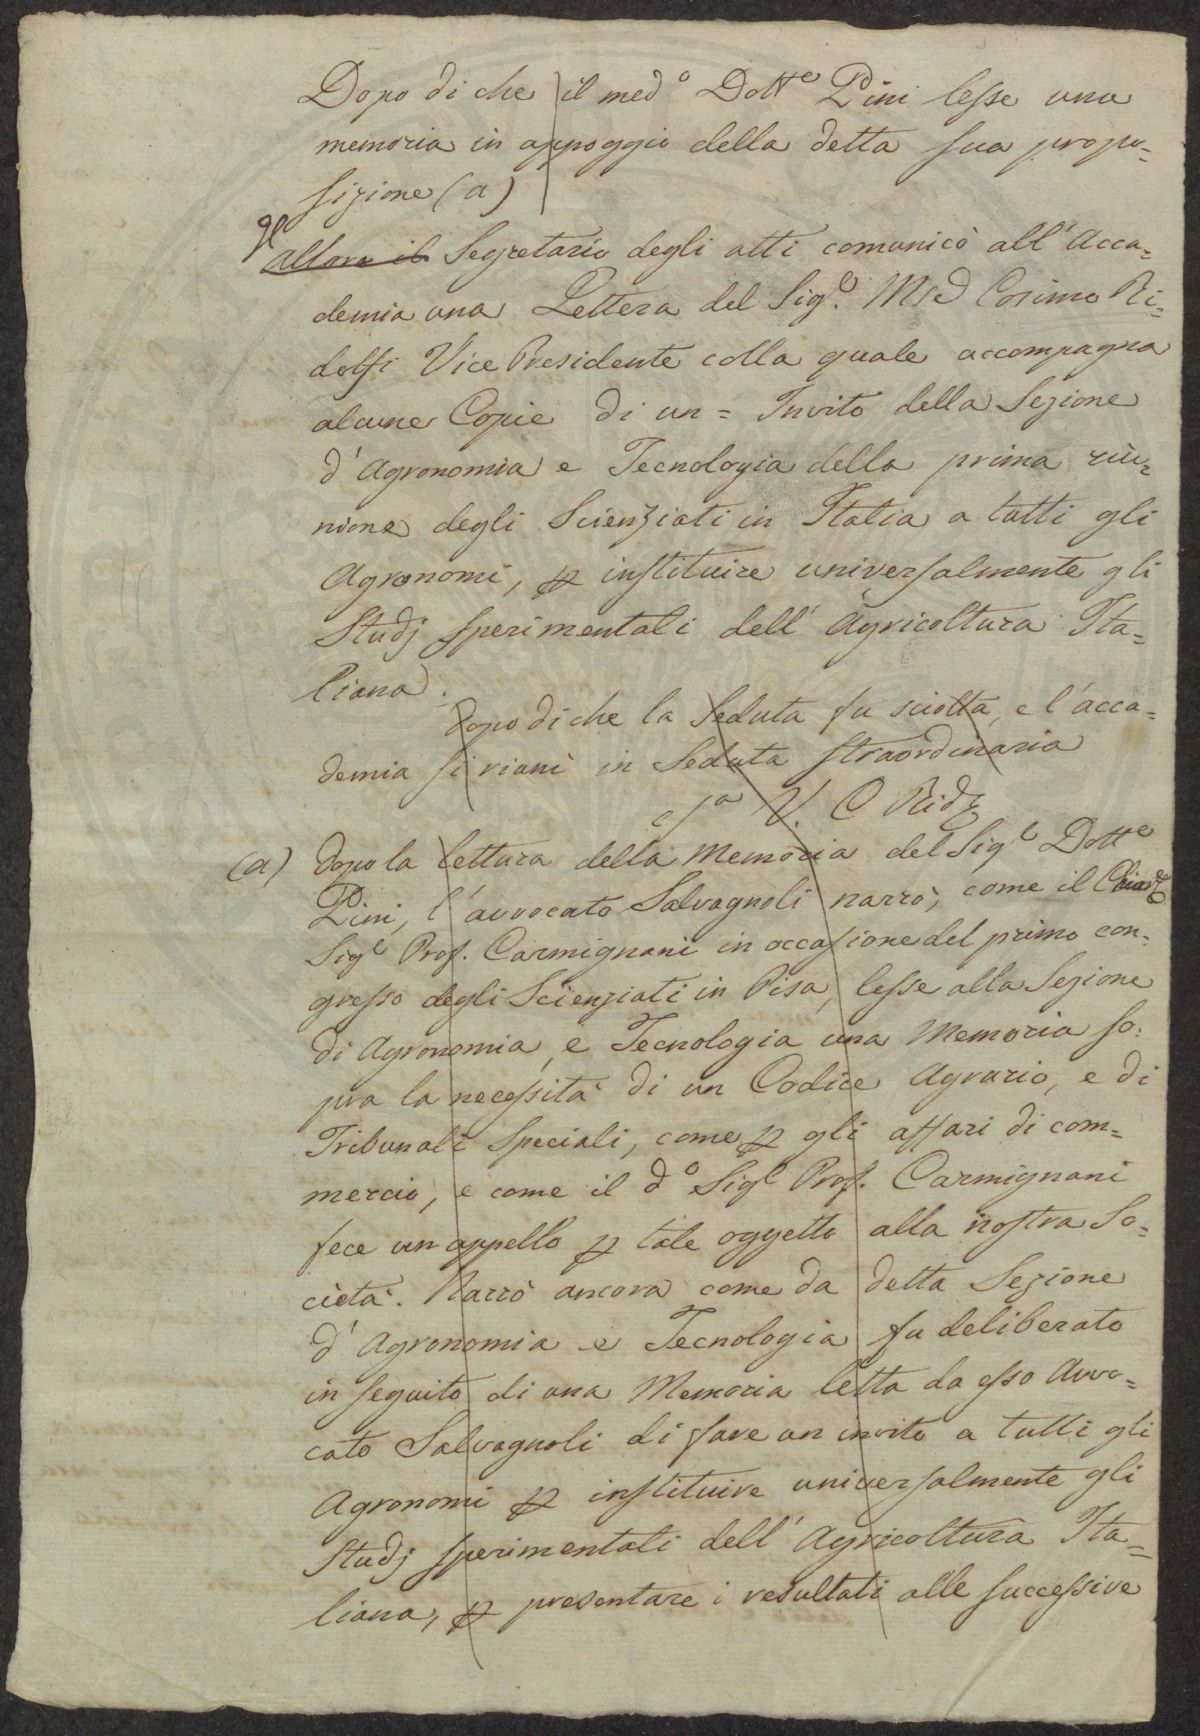 Dopo di che il med.o Dott.e Pini lesse una
memoria in appoggio della detta sua propo=
sizione (a)
Il
allora il Segretario degli atti comunicò all'Acca=
demia una Lettera del Sig.e Mse Cosimo Ri=
dolfi Vice Presidente colla quale accompagna
alcune Copie di un = Invito della Sezione
d'Agronomia e Tecnologia della prima riu=
nione degli Scienziati in Italia a tutti gli
Agronomi, p instituire universalmente gli
Studj sperimentali dell'Agricoltura Ita=
liana.
Dopo di che la Seduta fu sciolta, e l'acca=
demia si riunì in Seduta straordinaria
V. C Rid
(a) Dopo la lettura della Memoria del Sig.e Dott.e
Pini, l'avvocato Salvagnoli narrò, come il
Sig.e Prof. Carmignani in occasione del primo con=
gresso degli Scienziati in Pisa, lesse alla Sezione
di Agronomia, e Tecnologia una Memoria so=
pra la necessità di un Codice Agrario, e di
Tribunali Speciali, come p gli affari di com=
mercio, e come il d.o Sig.e Prof. Carmignani
fece un appello p tale oggetto alla nostra So=
cietà. Narrò ancora come da detta Sezione
d'Agronomia e Tecnologia fu deliberato
in seguito di una Memoria letta da esso Avvo=
cato Salvagnoli di fare un invito a tutti gli
Agronomi p instituire universalmente gli
Studj sperimentali dell'Agricoltura Ita=
liana, p presentare i resultati alle successive